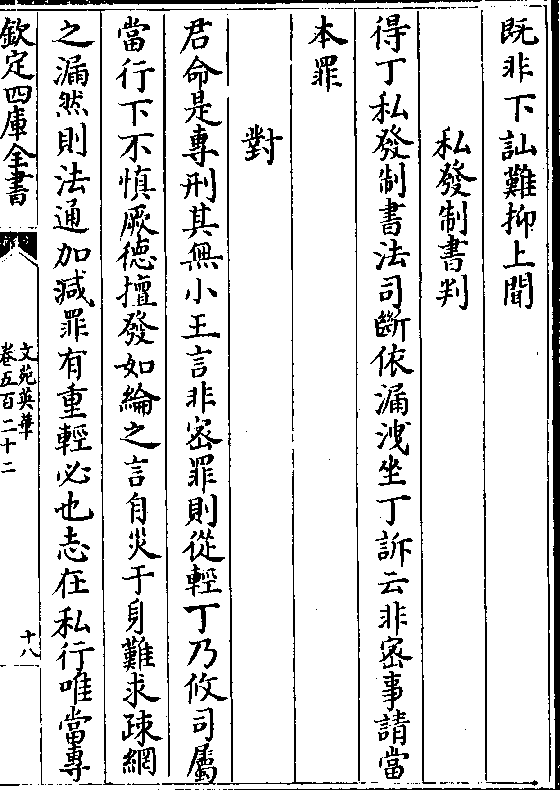 既非下訕難抑上聞
私發制書判
得丁私發制書法司斷依漏洩坐丁訴云非密事請當
本罪
對
君命是專刑其無小王言非密罪則從輕丁乃攸司屬
當行下不慎厥德擅發如綸之言自災于身難求疎網
之漏然則法通加減罪有重輕必也志在私行唯當專
欽定四庫全書
文苑英華
卷五百二十二
十八